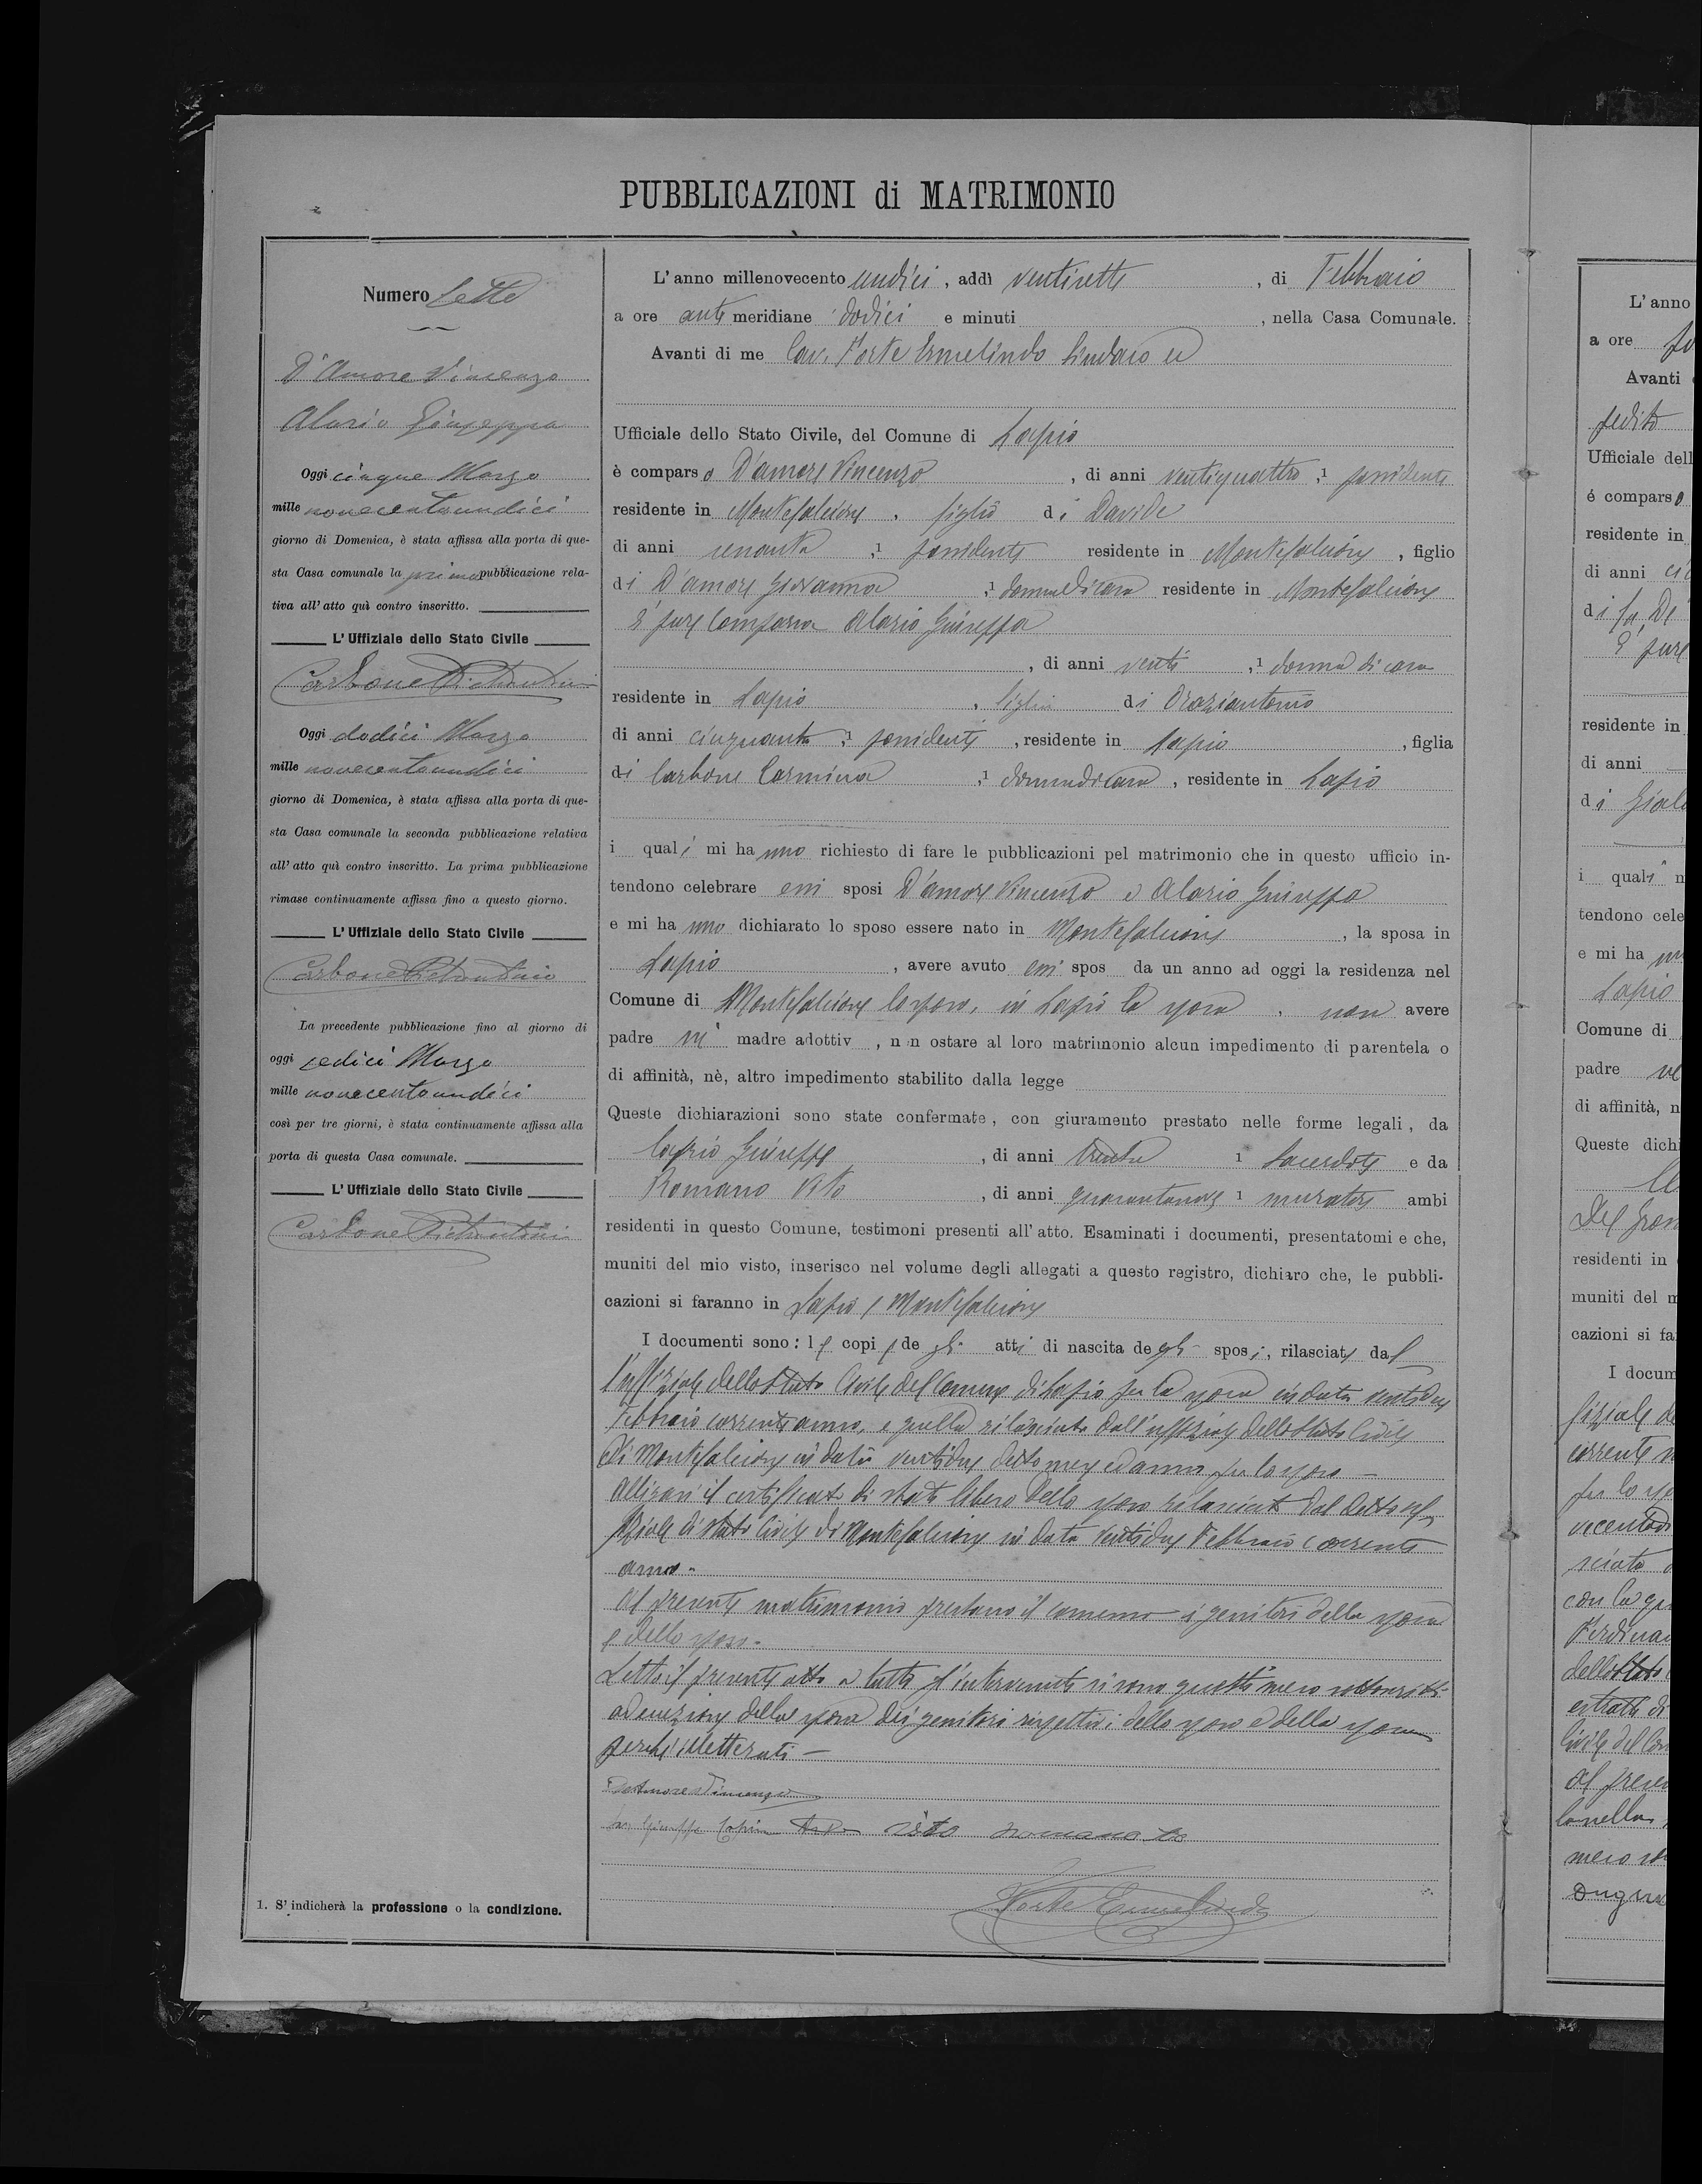 PUBBLICAZIONI di MATRIMONIO
Numero Sette
D'Amore Vincenzo
Alario Giuseppa
Oggi cinque Marzo
mille novecentoundici
giorno di Domenica, è stata affissa alla porta di que-
sta Casa comunale la prima pubblicazione rela-
tiva all' atto quì contro inscritto.
L' Uffiziale dello Stato Civile
Carbone Pietrantonio
Oggi dodici Marzo
mille novecentoundici
giorno di Domenica, è stata affissa alla porta di que-
sta Casa comunale la seconda pubblicazione relativa
all' atto quì contro inscritto. La prima pubblicazione
rimase continuamente affissa fino a questo giorno.
L' Uffiziale dello Stato Civile
Carbone Pietrantonio
La precedente pubblicazione fino al giorno di
oggi sedici Marzo
mille novecentoundici
così per tre giorni, è stata continuamente affissa alla
porta di questa Casa comunale.
L' Uffiziale dello Stato Civile
Carbone Pietrantonio
1. S' indicherà la professione o la condizione.
L' anno millenovecento undici, addì ventisette, di Febbraio
a ore anti meridiane dodici e minuti, nella Casa Comunale.
Avanti di me Cav. Forte Ermelindo Sindaco ed
Ufficiale dello Stato Civile, del Comune di Lapio
è comparso D'amore Vincenzo, di anni ventiquattro,1 possidente
residente in Montefalcione, figlio di Davide
di anni sessanta,1 possidente residente in Montefalcione, figlio
di D'amore Giovanna,1 donna di casa residente in Montefalcione
È pure comparsa Alario Giuseppa
, di anni venti,1 donna di casa
residente in Lapio, figlia di Oraziantonio
di anni cinquanta,1 possidente, residente in Lapio, figlia
di Carbone Carmina,1 donna di casa, residente in Lapio
i quali mi hanno richiesto di fare le pubblicazioni pel matrimonio che in questo ufficio in-
tendono celebrare essi sposi D'amore Vincenzo e Alario Giuseppa
e mi hanno dichiarato lo sposo essere nato in Montefalcione, la sposa in
Lapio, avere avuto essi spos da un anno ad oggi la residenza nel
Comune di Montefalcione lo sposo, in Lapio la sposa, non avere
padre nè madre adottiv, n n ostare al loro matrimonio alcun impedimento di parentela o
di affinità, nè, altro impedimento stabilito dalla legge
Queste dichiarazioni sono state confermate, con giuramento prestato nelle forme legali, da
Caprio Giuseppe, di anni trenta 1 Sacerdote e da
Romano Vito, di anni quarantanove 1 muratore ambi
residenti in questo Comune, testimoni presenti all' atto. Esaminati i documenti, presentatomi e che,
muniti del mio visto, inserisco nel volume degli allegati a questo registro, dichiaro che, le pubbli-
cazioni si faranno in Lapio e Montefalcione
I documenti sono: le copie degli atti di nascita degli sposi, rilasciate dal
l'uffiziale dello Stato Civile del Comune di Lapio per la sposa in data ventidue
Febbraio corrente anno, e quella rilasciata dall'uffiziale dello Stato Civile
di Montefalcione in data ventidue detto mese ed anno per lo sposo -
il certificato di stato libero dello sposo rilasciato dal detto uf
fiziale di Stato Civile di Montefalcione in data ventidue Febbraio corrente
anno.
Al presente matrimonio prestano il consenso i genitori della sposa
e dello sposo.
Letto il presente atto a tutti gl'intervenuti si sono questi meco sottoscritti
ad eccezione della sposa dei genitori rispettivi dello sposo e della sposa
perchè illetterati -
D'Amore Vincenzo
Giuseppe Caprio vito romano
Forte Ermelindo
L' anno
a ore
Avanti
Ufficiale dell
é comparso
residente in
di anni
di fu De
È pure
residente in
di anni
di
i quali n
tendono cele
e mi ha
Lapio
Comune di
padre
di affinità, n
Queste dichi
residenti in
muniti del m
cazioni si fa
I docum